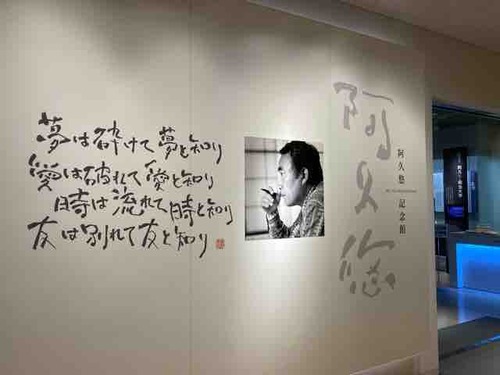 夢は砕けて夢と知り
愛は破れて愛と知り
時は流れて時と知り
友は別れて友と知り
阿久悠
阿久悠
記念館